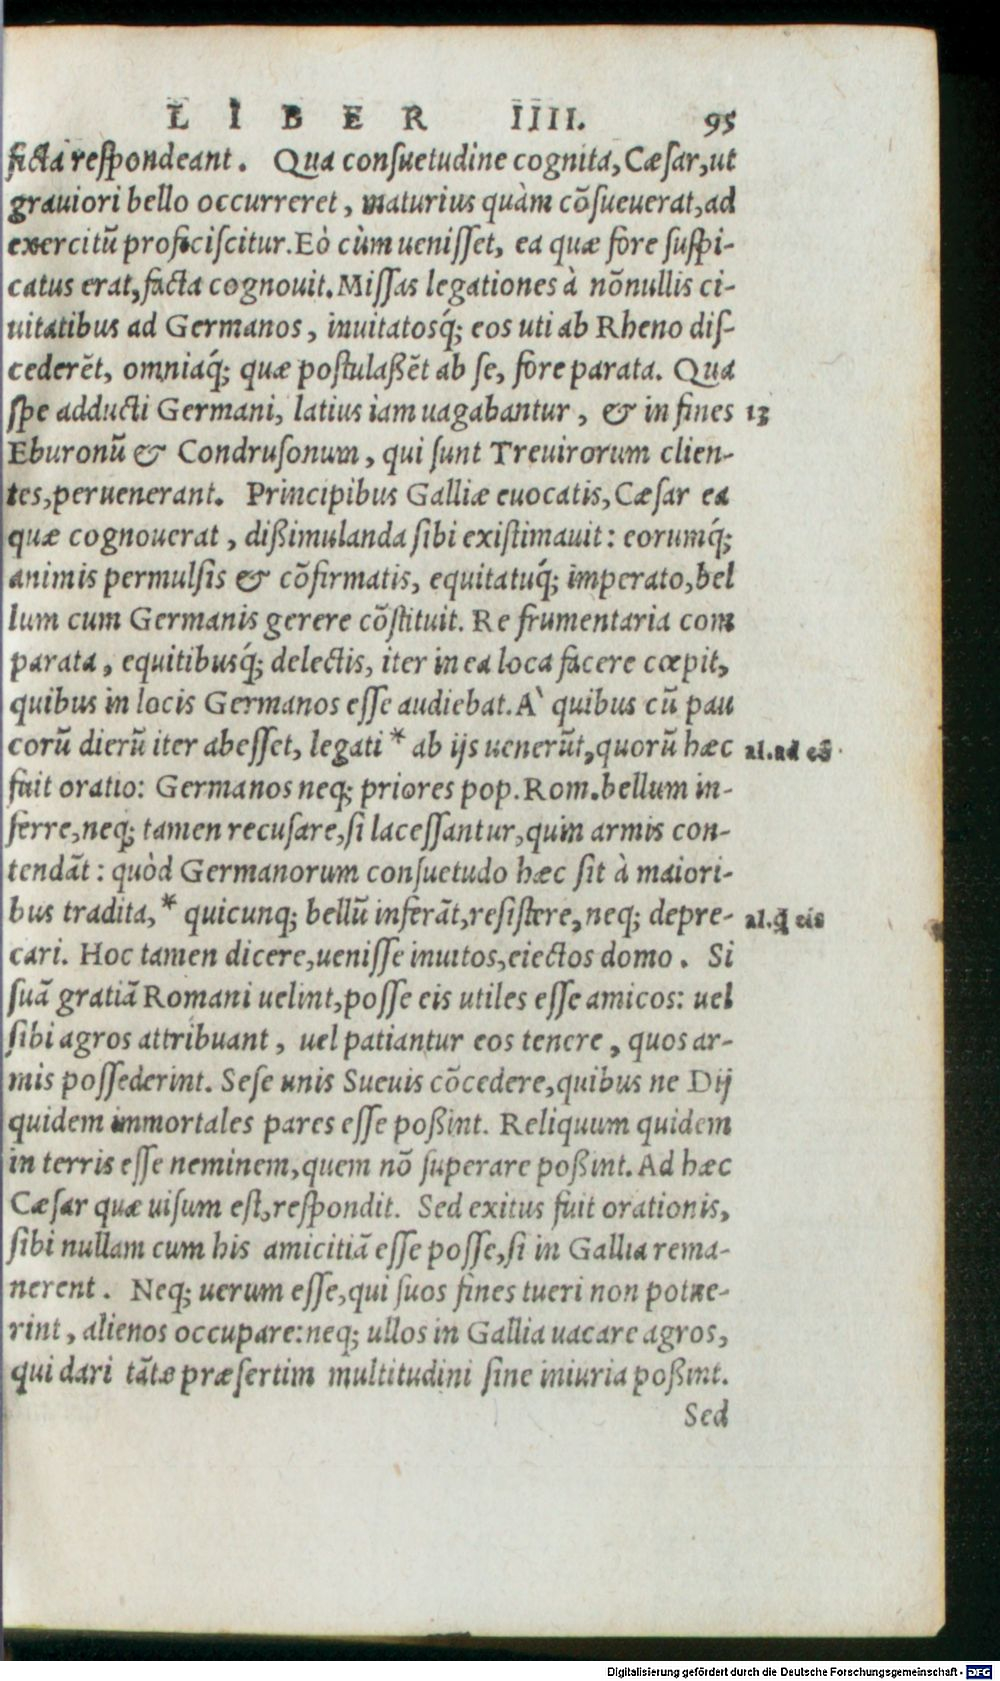 LIBER IIII. 95
ficta respondeant. Qua consuetudine cognita, Cæsar, ut
grauiori bello occurreret, maturius quàm cōsueuerat, ad
exercitū proficiscitur. Eò cùm uenisset, ea quæ fore suspi-
catus erat, facta cognouit. Missas legationes à nōnullis ci-
uitatibus ad Germanos, inuitatosq́; eos uti ab Rheno dis-
cederēt, omniaq́; quæ postulaßēt ab se, fore parata. Qua
spe adducti Germani, latius iam uagabantur, & in fines 13
Eburonū & Condrusonum, qui sunt Treuirorum clien-
tes, peruenerant. Principibus Galliæ euocatis, Cæsar ea
quæ cognouerat, dißimulanda sibi existimauit: eorumq́;
animis permulsis & cōfirmatis, equitatuq́; imperato, bel
lum cum Germanis gerere cōstituit. Re frumentaria com
parata, equitibusq́; delectis, iter in ea loca facere cœpit,
quibus in locis Germanos esse audiebat. A` quibus cū pau
corū dierū iter abesset, legati * ab ijs uenerūt, quorū hæc al. ad eū
fuit oratio: Germanos neq; priores pop. Rom. bellum in-
ferre, neq; tamen recusare, si lacessantur, quin armis con-
tendāt: quòd Germanorum consuetudo hæc sit à maiori-
bus tradita, * quicunq; bellū inferāt, resistere, neq; depre- al. q̄ eis
cari. Hoc tamen dicere, uenisse inuitos, eiectos domo. Si
suā gratiā Romani uelint, posse eis utiles esse amicos: uel
sibi agros attribuant, uel patiantur eos tenere, quos ar-
mis possederint. Sese unis Sueuis cōcedere, quibus ne Dij
quidem immortales pares esse poßint. Reliquum quidem
in terris esse neminem, quem nō superare poßint. Ad hæc
Cæsar quæ uisum est, respondit. Sed exitus fuit orationis,
sibi nullam cum his amicitiā esse posse, si in Gallia rema-
nerent. Neq; uerum esse, qui suos fines tueri non potue-
rint, alienos occupare: neq; ullos in Gallia uacare agros,
qui dari tātæ præsertim multitudini sine iniuria poßint.
Sed
Digitalisierung gefördert durch die Deutsche Forschungsgemeinschaft - DFG